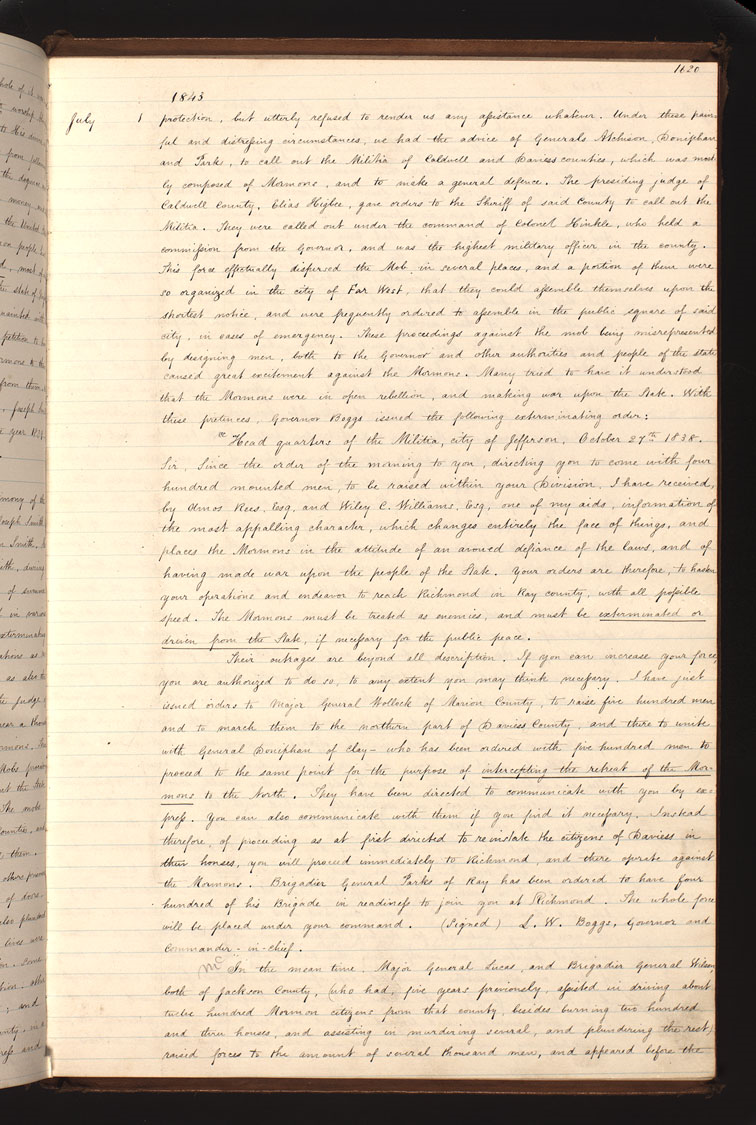 1620
1843
July 1 protection, but utterly refused to render us any assistance whatever. Under these pain-
ful and distressing circumstances, we had the advice of Generals Atchison, Doniphan
and Parks, to call out the Militia of Caldwell and Daviess counties, which was most-
ly composed of Mormons, and to make a general defence. The presiding judge of
Caldwell County, Elias Higbee, gave orders to the Sheriff of said County to call out the
Militia. They were called out under the command of Colonel Hinkle, who held a
commission from the Governor, and was the highest military officer in the county.
This force effectually dispersed the Mob in several places, and a portion of them were
so organized in the city of Far West, that they could assemble themselves upon the
shortest notice, and were frequently ordered to assemble in the public square of said
city, in cases of emergency. These proceedings against the mob being misrepresented
by designing men, both to the Governor and other authorities and people of the state
caused great excitement against the Mormons. Many tried to have it understood
that the Mormons were in open rebellion, and making war upon the State. With
these pretences, Governor Boggs issued the following exterminating order:
"Head quarters of the Militia, city of Jefferson, October 27th 1838.
Sir, Since the order of the morning to you, directing you to come with four
hundred mounted men, to be raised within your Division, I have received,
by Amos Rees, Esq, and Wiley C. Williams, Esq, one of my aids, information of
the most appalling character, which changes entirely the face of things, and
places the Mormons in the attitude of an avowed defiance of the laws, and of
having made war upon the people of the State. Your orders are therefore, to hasten
your operations and endeavor to reach Richmond in Ray county, with all possible
speed. The Mormons must be treated as enemies, and must be exterminated or
driven from the State, if necessary for the public peace.
Their outrages are beyond all description. If you can increase your force,
you are authorized to do so, to any extent you may think necessary. I have just
issued orders to Major General Wollock of Marion County, to raise five hundred men
and to march them to the northern part of Daviess County, and there to unite
with General Doniphan of Clay - who has been ordered with five hundred men to
proceed to the same point for the purpose of intercepting the retreat of the Mor-
mons to the North. They have been directed to communicate with you by ex-
press. You can also communicate with them if you find it necessary. Instead
therefore, of proceeding as at first directed to reinstate the citizens of Daviess in
their houses, you will proceed immediately to Richmond, and there operate against
the Mormons. Brigadier General Parks of Ray has been ordered to have four
hundred of his Brigade in readiness to join you at Richmond. The whole force
will be placed under your command. (Signed) L. W. Boggs, Governor and
Commander-in-chief.
In the mean time, Major General Lucas, and Brigadier General Wilson
both of Jackson County, (who had, five years previously, assisted in driving about
twelve hundred Mormon citizens from that county, besides burning two hundred
and three houses, and assisting in murdering several, and plundering the rest)
raised forces to the amount of several thousand men, and appeared before the